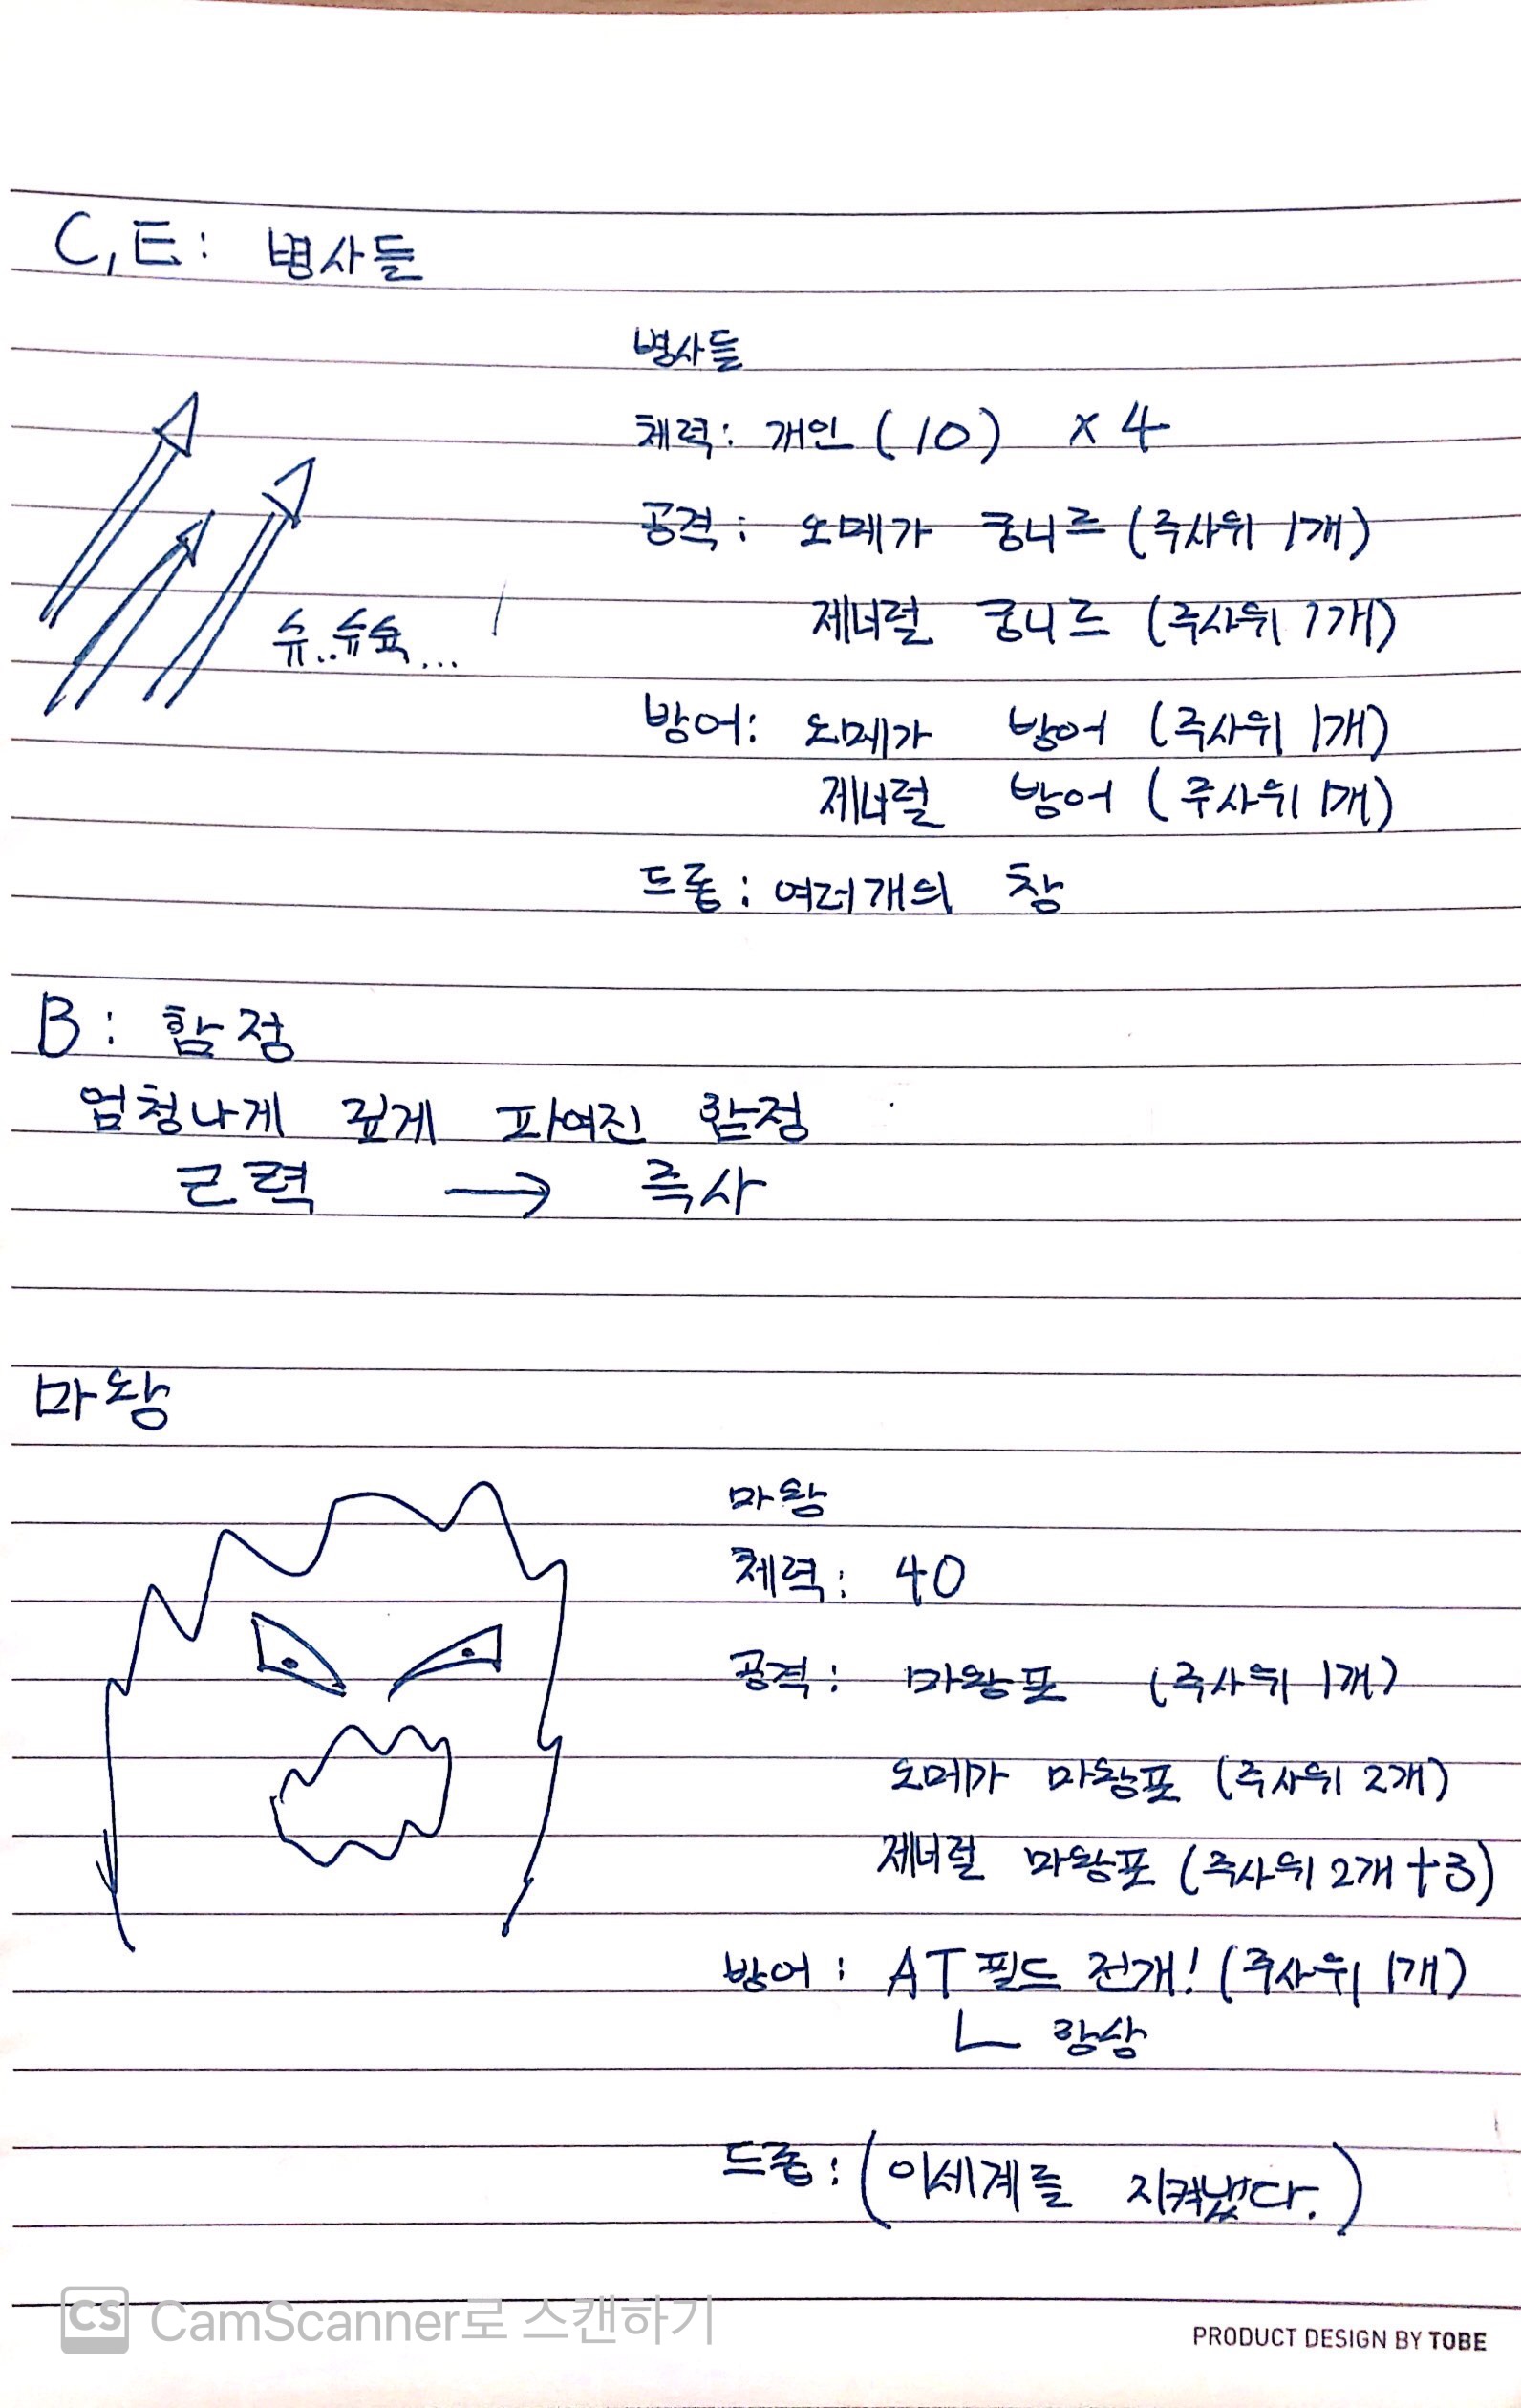 C, E : 병사들
병사들
체력 : 개인 (10) x 4
공격 : 오메가 궁니르 (주사위 1개)
슈..슈슉...
제너럴 궁니르 (주사위 1개)
방어 : 오메가 방어 (주사위 1개)
제너럴 방어 (주사위 1개)
드롭 : 여러개의 창
B : 함정
엄청나게 깊게 파여진 함정
근력 → 즉사
마왕
마왕
체력 : 40
공격 : 마왕포 (주사위 1개)
오메가 마왕포 (주사위 2개)
제너럴 마왕포 (주사위 2개 +3)
방어 : AT 필드 전개! (주사위 1개)
ㄴ 항상
드롭 : (이세계를 지켜냈다.)
CS CamScanner로 스캔하기
PRODUCT DESIGN BY TOBE